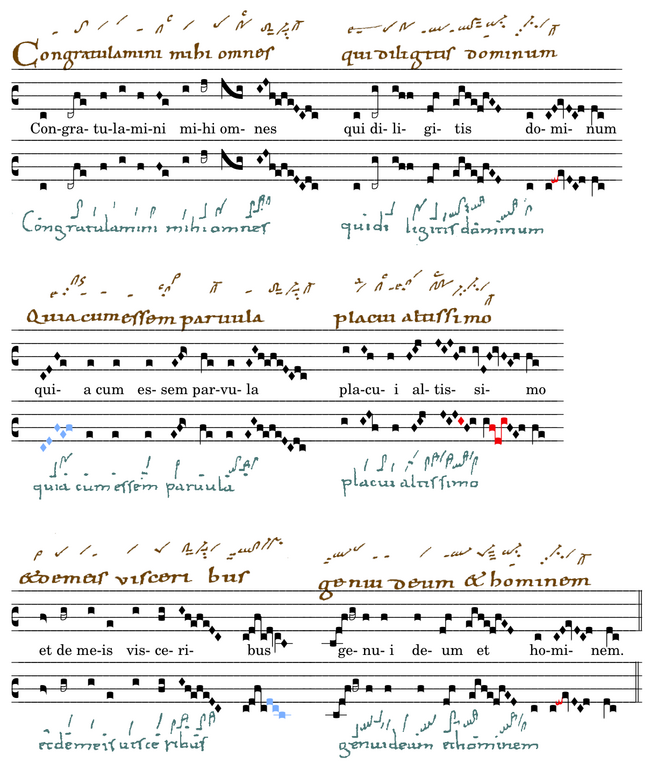 Congratulamini mihi omnes quidiligitis dominum
Con-gra- tu-la-mi-ni mi-hi om- nes qui di- li- gi- tis do- mi- num
Congratulamini mihi omnes quidi ligitis dominum
Quia cum essem paruula placui altissimo
qui- a cum es- sem par-vu- la pla-cu- i al- tis- si- mo
quia cum essem paruula placui altissimo
&demeis visceri bus genui deum & hominem
et de me-is vis- ce- ri- bus ge- nu- i de- um et ho-mi- nem.
etdemeis uisce ribus genuideum ethominem